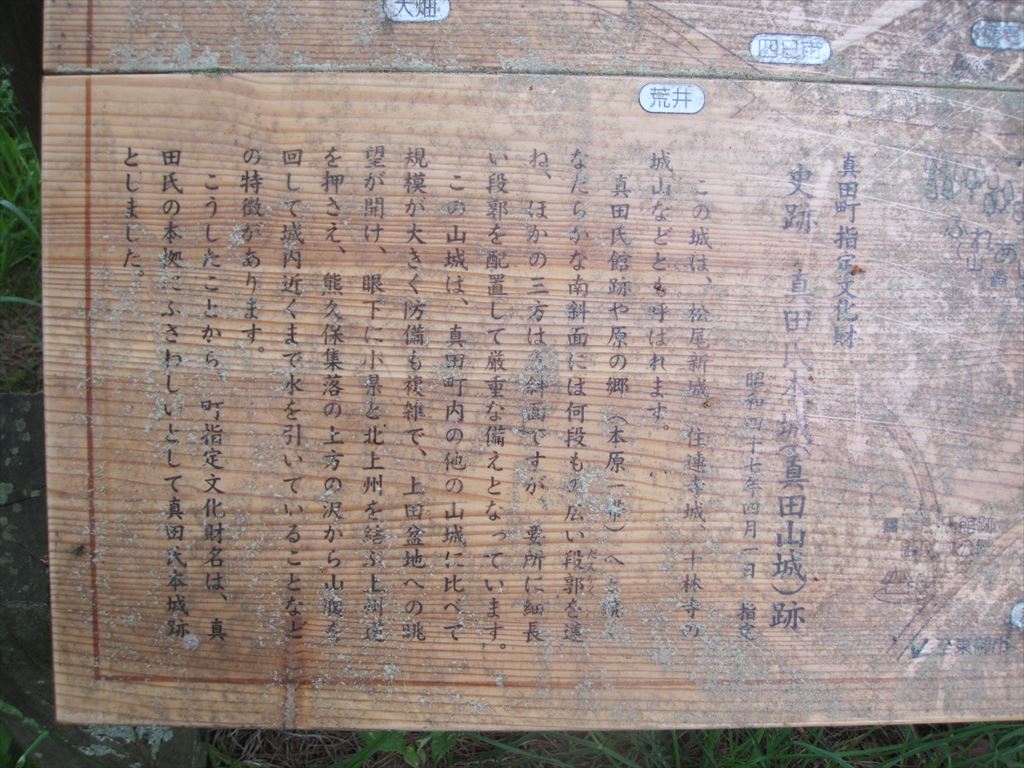 大畑
四日市
荒井
ふれあい
真田町指定文化財
史跡　真田氏本城(真田山城)跡
昭和四十七年四月一日　指定
この城は、松尾新城、住連寺城、十林寺の
城山などとも呼ばれます。
真田氏館跡や原の郷（本原一帯）へと続く
なだらかな南斜面には何段もの広い段郭を連
ね、ほかの三方は急斜面ですが、要所に細長
い段郭を配置して厳重な備えとなっています。
この山城は、真田町内の他の山城に比べて
規模が大きく防備も複雑で、上田盆地への眺
望が開け、眼下に小県と北上州を結ぶ上州道
を押さえ、熊久保集落の上方の沢から山腹を
回して城内近くまで水を引いていることなど
の特徴があります。
こうしたことから、町指定文化財名は、真
田氏の本拠にふさわしいとして真田氏本城跡
としました。